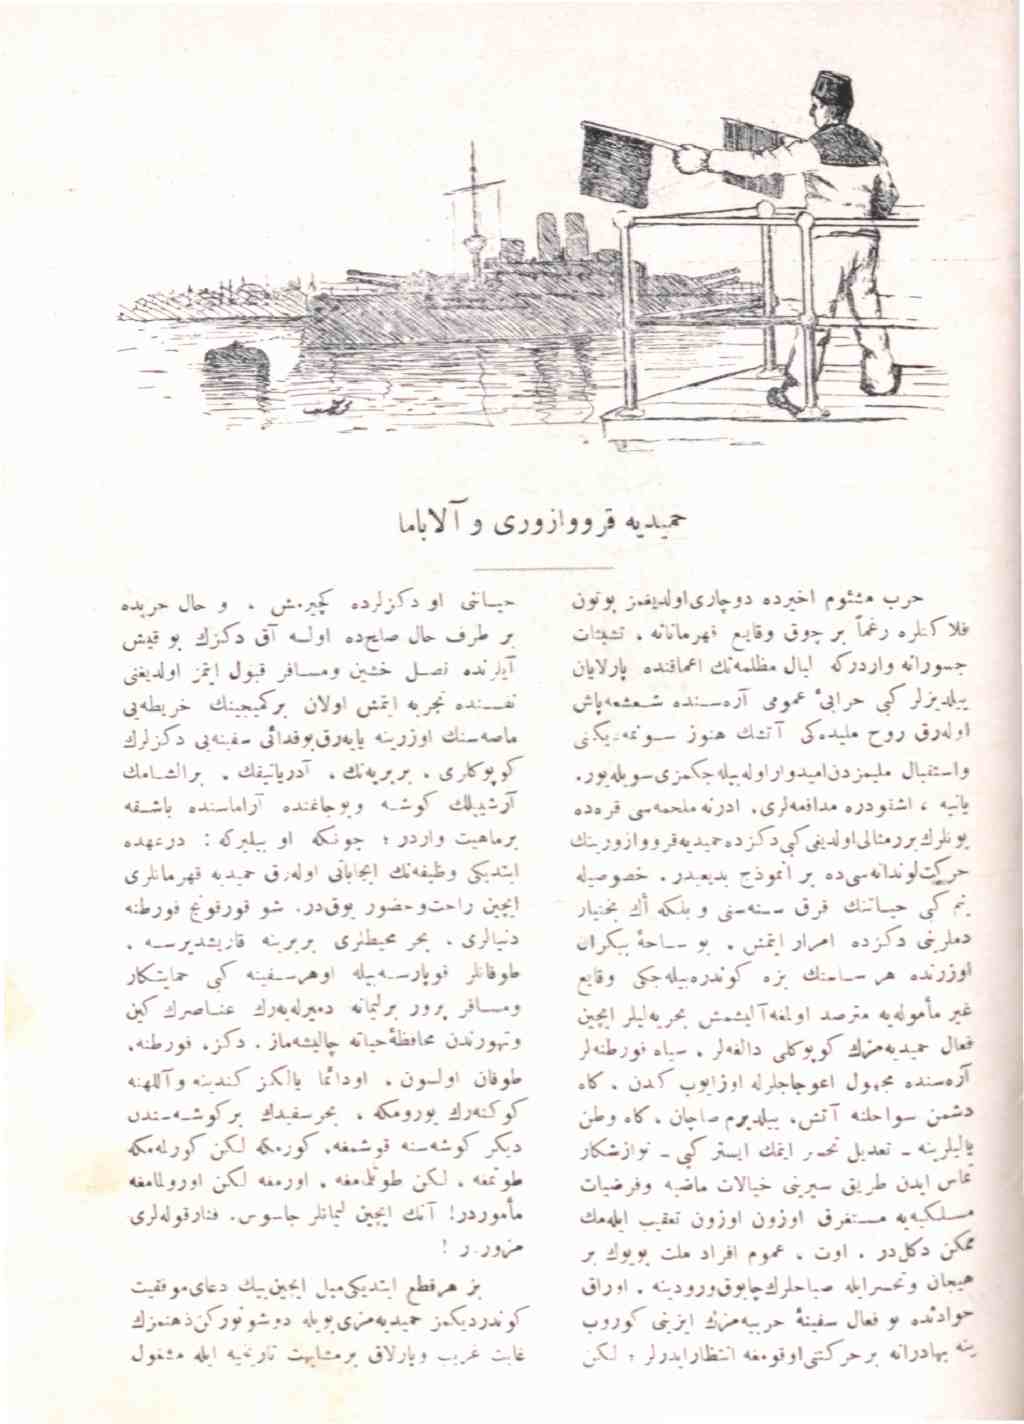 حمیدیه قرووازوری و آلاباما
حرب مشئوم اخیرده دوچاری اولدیغمز بوتون
فلاکتلره رغماً بر چوق وقایع قهرمانانه ، تشبثات
جسورانه واردرکه لیال مظلمه‌نك اعماقنده پارلایان
ییلدیزلر کبی خرابیٔ عمومی آره‌سنده شعشعه‌پاش
اوله‌رق روح ملیده‌کی آتشك هنوز سونمه‌دیکنی
واستقبال ملیمزدن امیدوار اوله‌بیله‌جکمزی سویله‌یور.
یانیه ، اشقودره مدافعه‌لری، ادرنه ملحمه‌سی قره‌ده
بونلرك بررمثالی اولدیغی کبی دکزده حمیدیه قرووازورینك
حرکت لوندانه‌سی‌ده بر انموذج بدیعیدر. خصوصیله
بنم کبی حیاتنك قرق سنه‌سنی و بلکه أك بختیار
دملرینی دکزده امرار ایتمش ، بو ساحهٔ بیکران
اوزرنده هر ساعتك بزه کوندره‌بیله‌جکی وقایع
غیر مأموله‌یه مترصد اولمغه آلیشمش بحریه‌لیلر ایچین
فعال حمیدیه‌مزك کوپوکلی دالغه‌لر ، سیاه فورطنه‌لر
آره‌سنده مجهول اعوجاجلرله اوزایوب کیدن ، کاه
دشمن سواحلنه آتش، ییلدیرم صاچان ، کاه وطن
یالیلرینه ـ تعدیل تحسر ایتمك ایستر کبی ـ نوازشکار
تماس ایدن طریق سیرینی خیالات ماضیه وفرضیات
مسلکیه‌یه مستغرق اوزون اوزون تعقیب ایله‌مك
ممکن دکل‌در . اوت ، عموم افراد ملت بویوك بر
هیجان وتحسرایله صباحلرك چابوق ورودینه ، اوراق
حوادثده بو فعال سفینهٔ حربیه‌مزك ایزینی کوروب
ینه بهادرانه برحرکتنی اوقومغه انتظار ایدرلر ؛ لکن
حیاتنی او دکزلرده کچیرمش ، و حال حربده
بر طرف حال صلح‌ده اولسه آق دکزك بو قیش
آیلرنده نصل خشین ومسافر قبول ایتمز اولدیغنی
نفسنده تجربه ایتمش اولان برکمیجینك خریطه‌یی
ماصه‌سنك اوزرینه یایه‌رق بوفدائی سفینه‌یی دکزلرك
کوپوکلری ، بربریه‌نك ، آدریاتیقك ، برالشامك
آرشیپلك کوشه وبوجاغنده آراماسنده باشقه
برماهیت واردر ؛ چونکه او بیلیرکه : درعهده
ایتدیکی وظیفه‌نك ایجاباتی اوله‌رق حمیدیه قهرمانلری
ایچین راحت‌وحضور یوق‌در. شو قورقونج فورطنه
دنیالری ، بحر محیطلری بربرینه قاریشدیرسه ،
طوفانلر قوپارسه‌بیله اوهرسفینه کبی حمایتکار
ومسافر پرور برلیمانه دمیرله‌یه‌رك عناصرك کین
وتهورندن محافظهٔ حیاته چالیشه‌ماز. دکز، فورطنه،
طوفان اولسون ، اودائما یالکز کندینه و آللهنه
کوکنه‌رك یورومکه ، بحرسفیدك برکوشه‌سندن
دیکر کوشه‌سنه قوشمغه، کورمکه لکن کورلمه‌مکه
طوتمغه ، لکن طوتلمامغه ، اورمغه لکن اورولمامغه
مأموردر! آنك ایچین لیمانلر جاسوس، فنارقوله‌لری
مزوردر !
بز هرقطع ایتدیکی‌میل ایچین‌بیك دعای‌موفقیت
کوندردیکمز حمیدیه‌مزی‌بویله دوشونورکن‌ذهنمزك
غایت غریب وپارلاق برمشابهت تاریخیه ایله مشغول